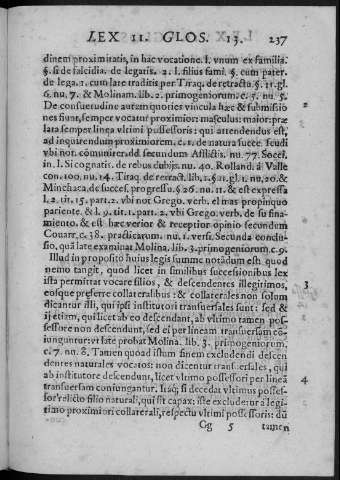 LEX II. GLOS. 13. 237
dinem proximitatis, in hac vocatione. l. vnum ex familia.
§. si de falcidia. de legatis. 2. l. filius fami. §. cum pater.
de lega. 1. cum late traditis per Tiraq. de retractu. §. 11. gl.
6. nu. 7. & Molinam. lib. 2. primogeniorum. c. 7. nu. 5.
De consuetudine autem quoties vincula hæc & submissio
nes siunt, semper vocatur proximior: masculus: maior: præ
lata semper linea vltimi possessoris: qui attendendus est,
ad inquirendum proximiorem. c. 1. de natura succe. feudi
vbi not. communiter. dd. secundum Afflictis. nu. 77. Soccī.
in. l. Si cognatis. de rebus dubijs. nu. 40. Rolland. à Valle
con. 100. nu. 14. Tiraq. de retract. lib. 1. §. 11. gl. 1. nu. 20. &
Minchaca, de succes. progressu. §. 26. nu. 11. & est expressa
l. 2. tit. 15. part. 2. vbi not Gregor. verb. el mas propinquo
pariente. & l. 9. tit. 1. part. 2. vbi Grego. verb. de su fina-
miento. & est hæc verior & receptior opinio secundum
Couarr. c. 38. practicarum. nu. 1. versi. Secunda condi-
sio, quā late examinat Molina. lib. 3. primogeniorum. c. 9.
Illud in proposito huius legis summe notādum est quod
nemo tangit, quod licet in similibus successionibus lex
ista permittat vocare filios, & descendentes illegitimos,
eosque præferre collateralibus: & collaterales non solum
dicantur illi, qui ipsi institutori transuersales sunt: sed &
ij etiam, qui licet ab eo descendant, ab vltimo tamen pos-
sessore non descendunt, sed ei per lineam transuersam cō-
iunguntur: vt late probat Molina. lib. 3. primogeniorum.
c. 7. nu. 8. Tamen quoad istum finem excludendi descen
dentes naturales vocatos: non dicentur transuersales, qui
ab institutore descendunt, licet vltimo possessori per lineā
transuersam coniungantur. Itaq; si decedat vltimus posses-
sor relicto filio naturali, qui sit capax: iste exclude: ur a legi-
timo proximiori collaterali, respectu vltimi possessoris: dū
Gg 5 tamen
2
3
4